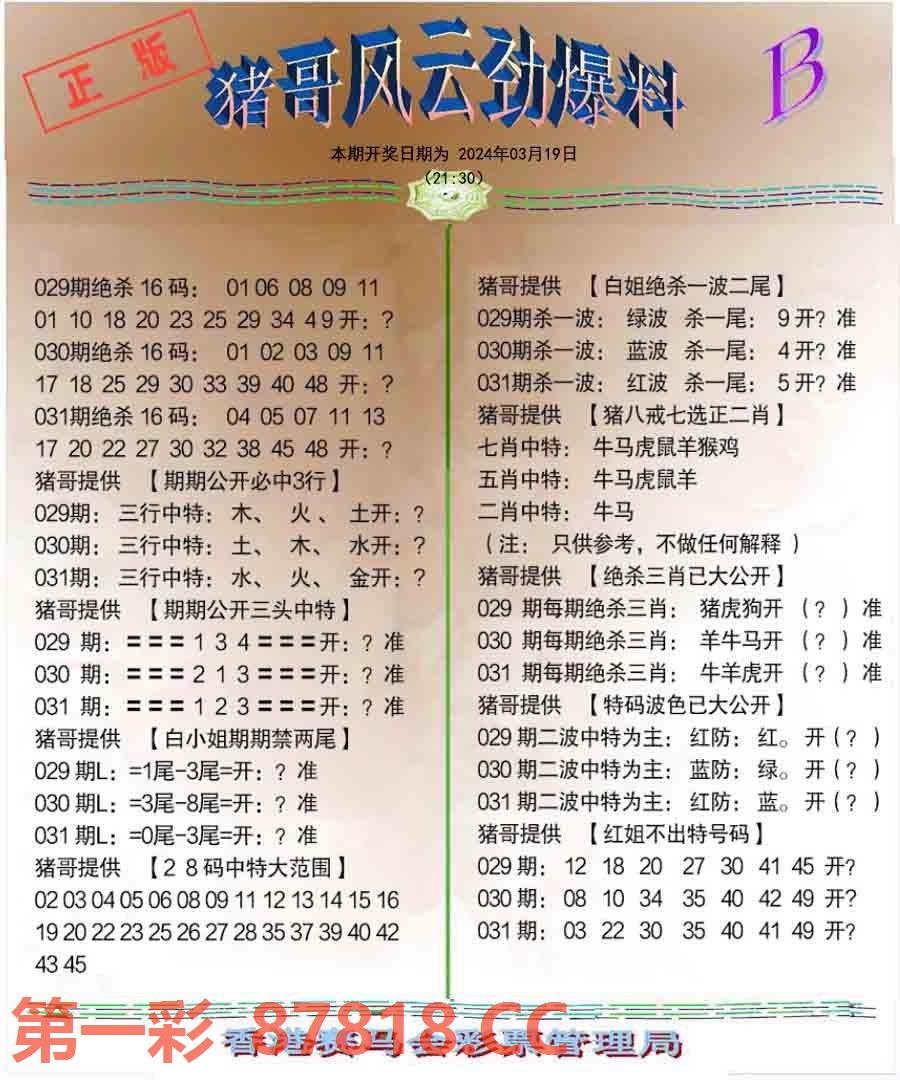 正版
猪哥风云劲爆料
B
本期开奖日期为 2024年03月19日
(21:30)
029期绝杀 16 码： 01 06 08 09 11
01 10 18 20 23 25 29 34 4 9 开：？
030期绝杀 16 码： 01 02 03 09 11
17 18 25 29 30 33 39 40 48 开：？
031期绝杀 16 码： 04 05 07 11 13
17 20 22 27 30 32 38 45 48 开：？
猪哥提供 【期期公开必中3行】
029期： 三行中特： 木、 火 、 土开：？
030期： 三行中特： 土、 木、 水开：？
031期： 三行中特： 水、 火、 金开：？
猪哥提供 【期期公开三头中特】
029 期：〓〓〓 1 3 4 〓〓〓开：？准
030 期：〓〓〓 2 1 3 〓〓〓开：？准
031 期：〓〓〓 1 2 3 〓〓〓开：？准
猪哥提供 【白小姐期期禁两尾】
029 期L：=1尾-3尾=开：？准
030 期L：=3尾-8尾=开：？准
031 期L：=0尾-3尾=开：？准
猪哥提供 【２８码中特大范围】
02 03 04 05 06 08 09 11 12 13 14 15 16
19 20 22 23 25 26 27 28 35 37 39 40 42
43 45
猪哥提供 【白姐绝杀一波二尾】
029期杀一波： 绿波 杀一尾： 9 开？准
030期杀一波： 蓝波 杀一尾： 4 开？准
031期杀一波： 红波 杀一尾： 5 开？准
猪哥提供 【猪八戒七选正二肖】
七肖中特： 牛马虎鼠羊猴鸡
五肖中特： 牛马虎鼠羊
二肖中特： 牛马
（注： 只供参考，不做任何解释 ）
猪哥提供 【绝杀三肖已大公开】
029 期每期绝杀三肖： 猪虎狗开 （？）准
030 期每期绝杀三肖： 羊牛马开 （？）准
031 期每期绝杀三肖： 牛羊虎开 （？）准
猪哥提供 【特码波色已大公开】
029 期二波中特为主：红防：红。开（？）
030 期二波中特为主：蓝防：绿。开（？）
031 期二波中特为主：红防：蓝。开（？）
猪哥提供 【红姐不出特号码】
029 期： 12 18 20 27 30 41 45 开？
030 期： 08 10 34 35 40 42 49 开？
031 期： 03 22 30 35 40 41 49 开？
第一彩 87818.CC
香港赛马会彩票管理局